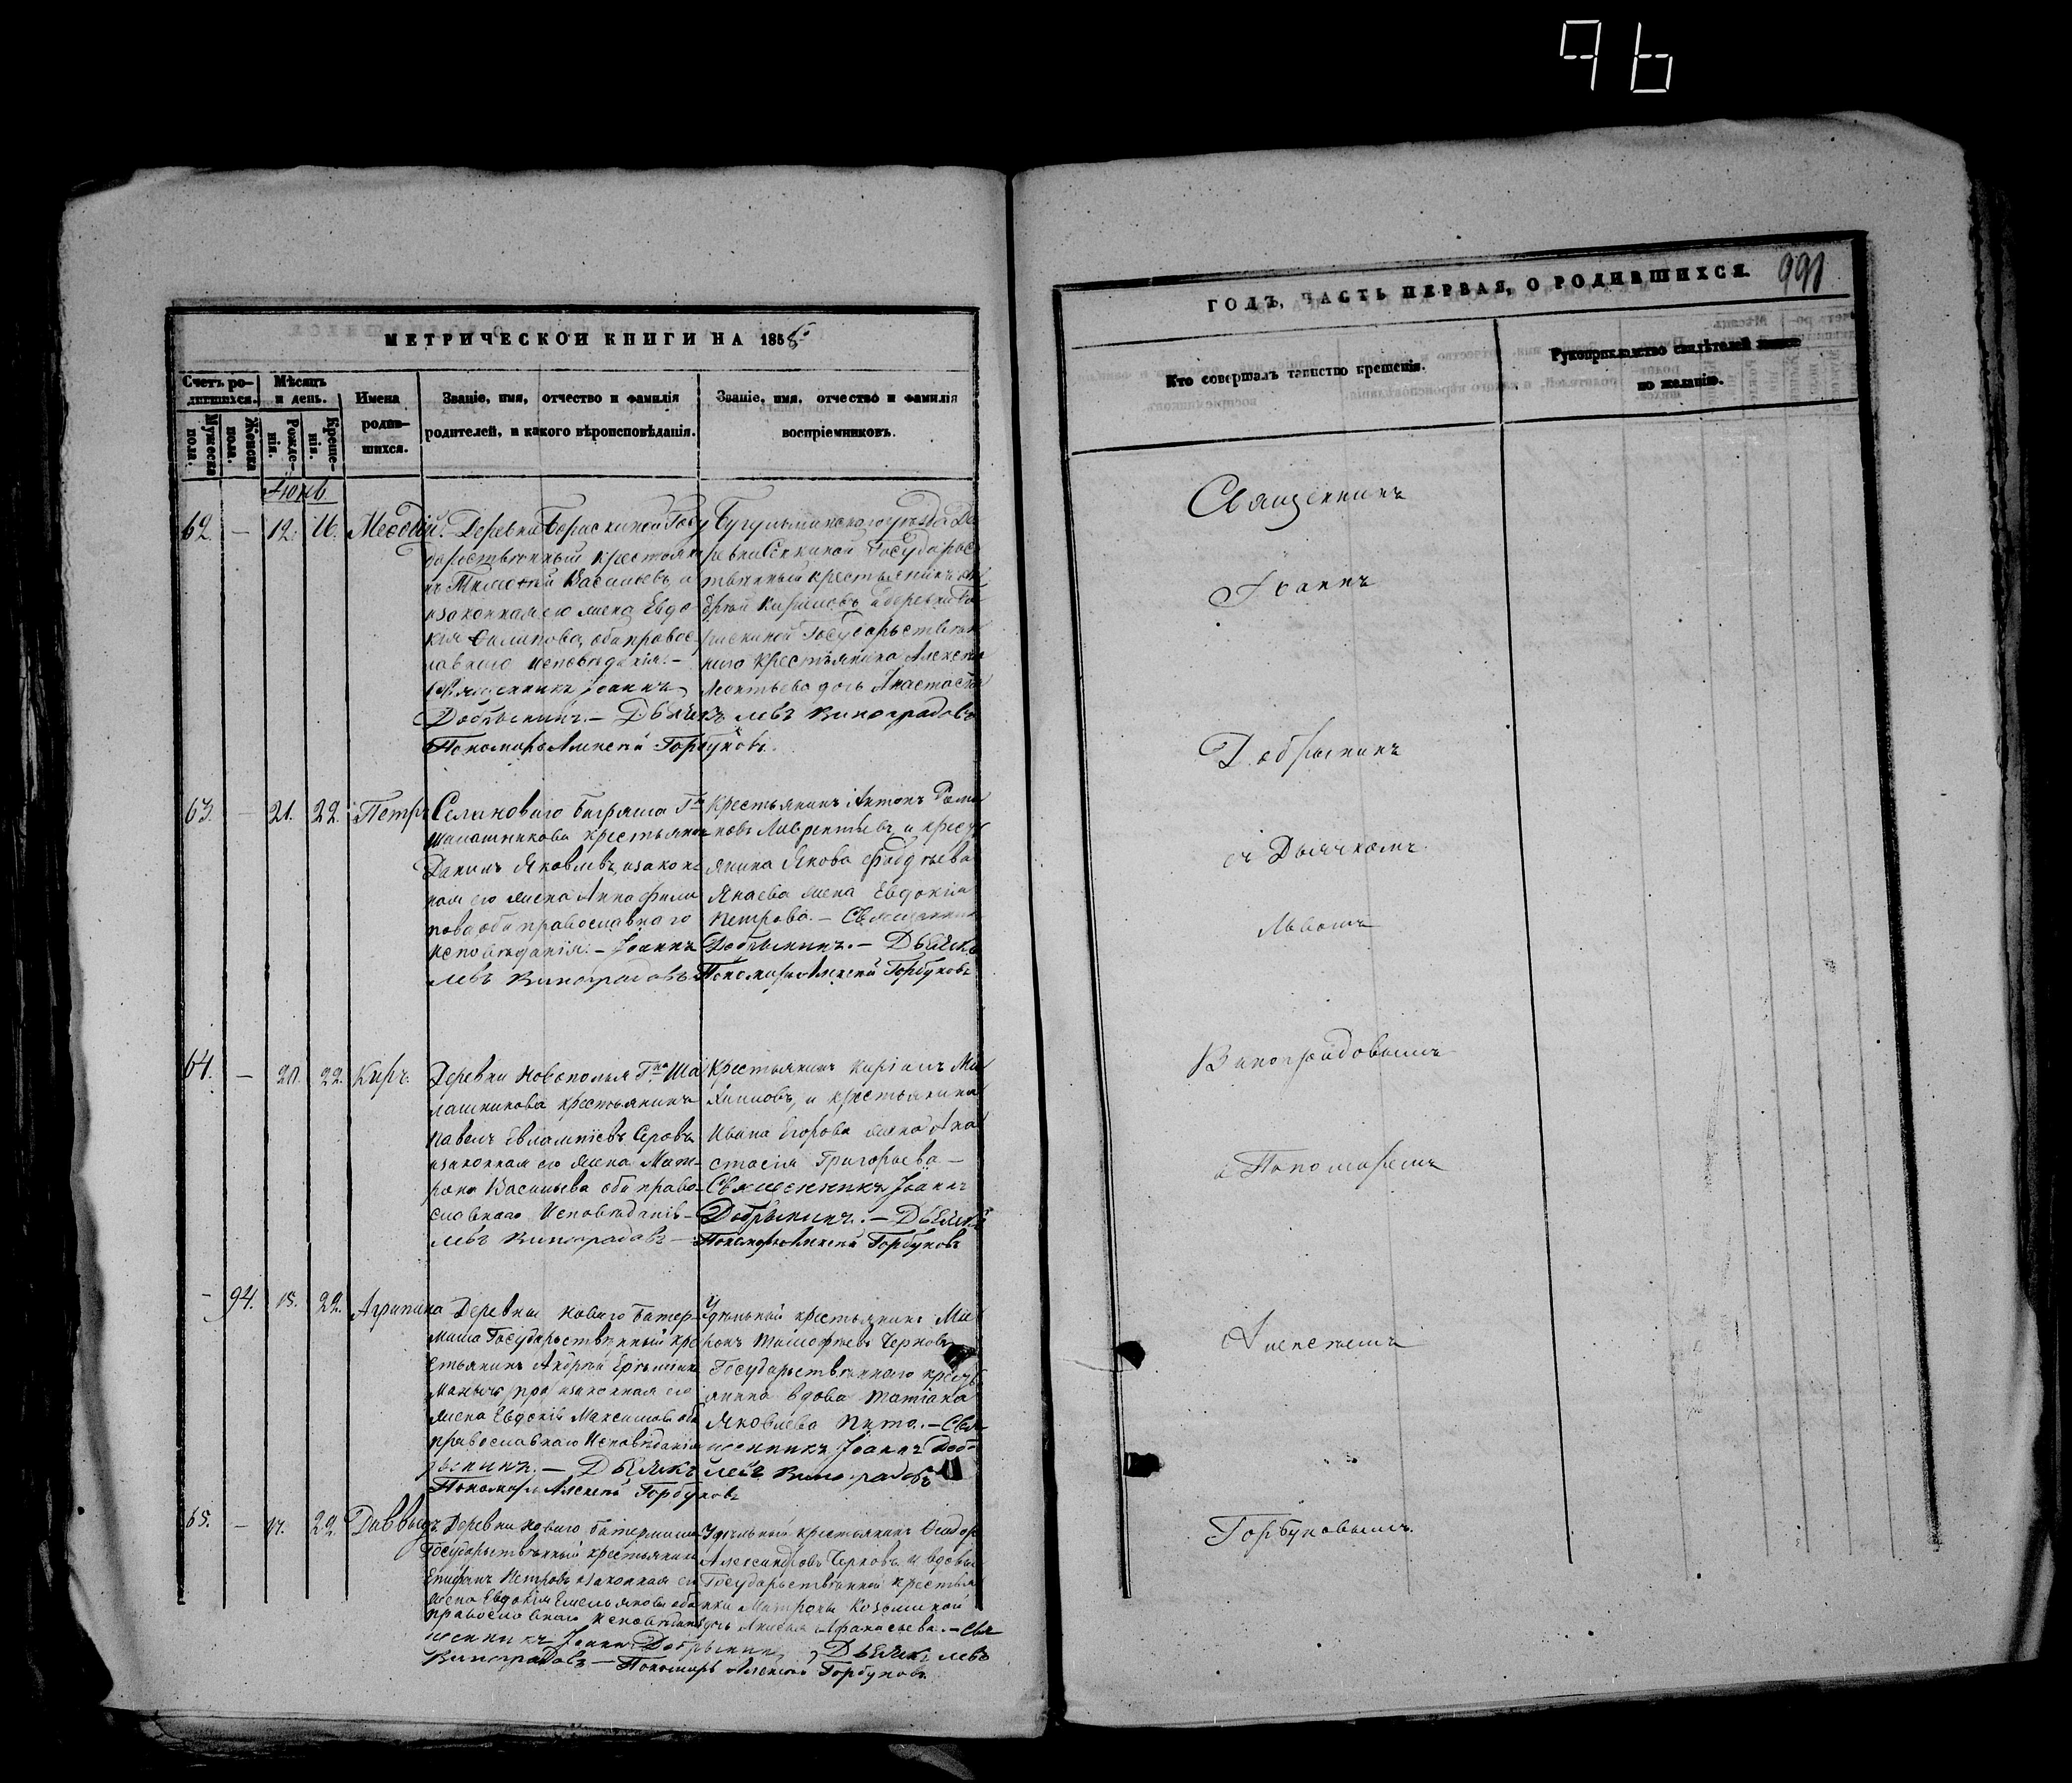 96
МЕТРИЧЕСКОЙ КНИГИ НА 1858
Счетъ ро-
дившихся.
Мужеска
пола.
Женска
пола.
Мѣсяцъ
и день.
Рожде-
нія.
Креще-
нія.
Имена
родив-
шихся.
Званіе, имя, отчество и фамилія
родителей, и какого вѣроисповѣданія.
Званіе, имя, отчество и фамилія
воспріемниковъ.
62. — 12. 16. Меѳодій.
Деревни Борискиной Госу
дарственный крестьяни
нъ Тимоѳей Васильевъ и
и законная его жена Евдо
кія Филипова, оба правос
лавнаго исповѣданія. —
Священникъ Іоаннъ
Добрынинъ. — Дьячекъ Левъ Виноградовъ
Пономарь Алексей Горбуновъ.
Бугульминского уѣзда Де
ревни Секиной Государс
твенный крестьянинъ
Кириловъ и деревни Бо
рискиной Государствен
наго крестьянина Алексея
Леонтьева дочь Анастасія
63. — 21. 22. Петръ
Села новаго Г-на
Шалашникова крестьянинъ
Данилъ Яковлевъ, и законн
ная его жена Анна Фили
пова оба православнаго
исповѣданія. — Іоаннъ Добрынинъ. — Дьячекъ
Левъ Виноградовъ Пономарь Алексей Горбуновъ
Крестьянинъ Антонъ Рома
новъ Лаврентьевъ, и крест
янина Якова
Янаева жена Евдокія
Петрова. — Священникъ
64. — 20. 22. Киръ.
Деревни Новополья Г-на Ша
лашникова крестьянинъ
Павелъ Евлампіевъ Серовъ
и законная его жена Мат-
рона Васильева оба право-
славнаго исповѣданія —
Левъ Виноградовъ —
Крестьянинъ
и крестьянина
Ивана Егорова жена Ана
стасія Григорьева —
Священникъ Іоаннъ
Добрынинъ. — Дьячекъ
Пономарь Алексей Горбуновъ
— 94. 22. Агрипина
Деревни Новаго Батер-
миша Государственный кре
стьянинъ Андрей
и законная его
жена Евдокія Максимова оба
православнаго исповѣданія
рынинъ. — Дьячекъ Левъ Виноградовъ
Пономарь Алексей Горбуновъ
Удельный крестьянинъ Ми
ронъ Тимофѣевъ Черновъ
Государственнаго крест
янина вдова Татіана
Яковлева — Свя-
щенникъ Іоаннъ Доб-
65. — 22. Даввыдъ
Деревни Новаго Батермиша
Государственный крестьянинъ
Епифанъ Петровъ и законная его
жена Евдокія Емельянова оба
православнаго исповѣданія
щенникъ Іоаннъ Добрынинъ, Дьячекъ Левъ
Виноградовъ — Пономарь Алексей Горбуновъ
Удельный крестьянинъ Ѳеодоръ
Александровъ Черновъ и вдовы
Государственной крестьян
ки Матроны Козминой
дочь Афанасьева. — Свя
ГОДЪ, ЧАСТЬ ПЕРВАЯ, О РОДИВШИХСЯ.
991
Кто совершалъ таинство крещенія.
Рукоприкладство свидѣтелей записи
по желанію.
Священникъ
Іоаннъ
Добрынинъ
съ Дьячкомъ
Львомъ
Виноградовымъ
и Пономаремъ
Алексѣемъ
Горбуновымъ.